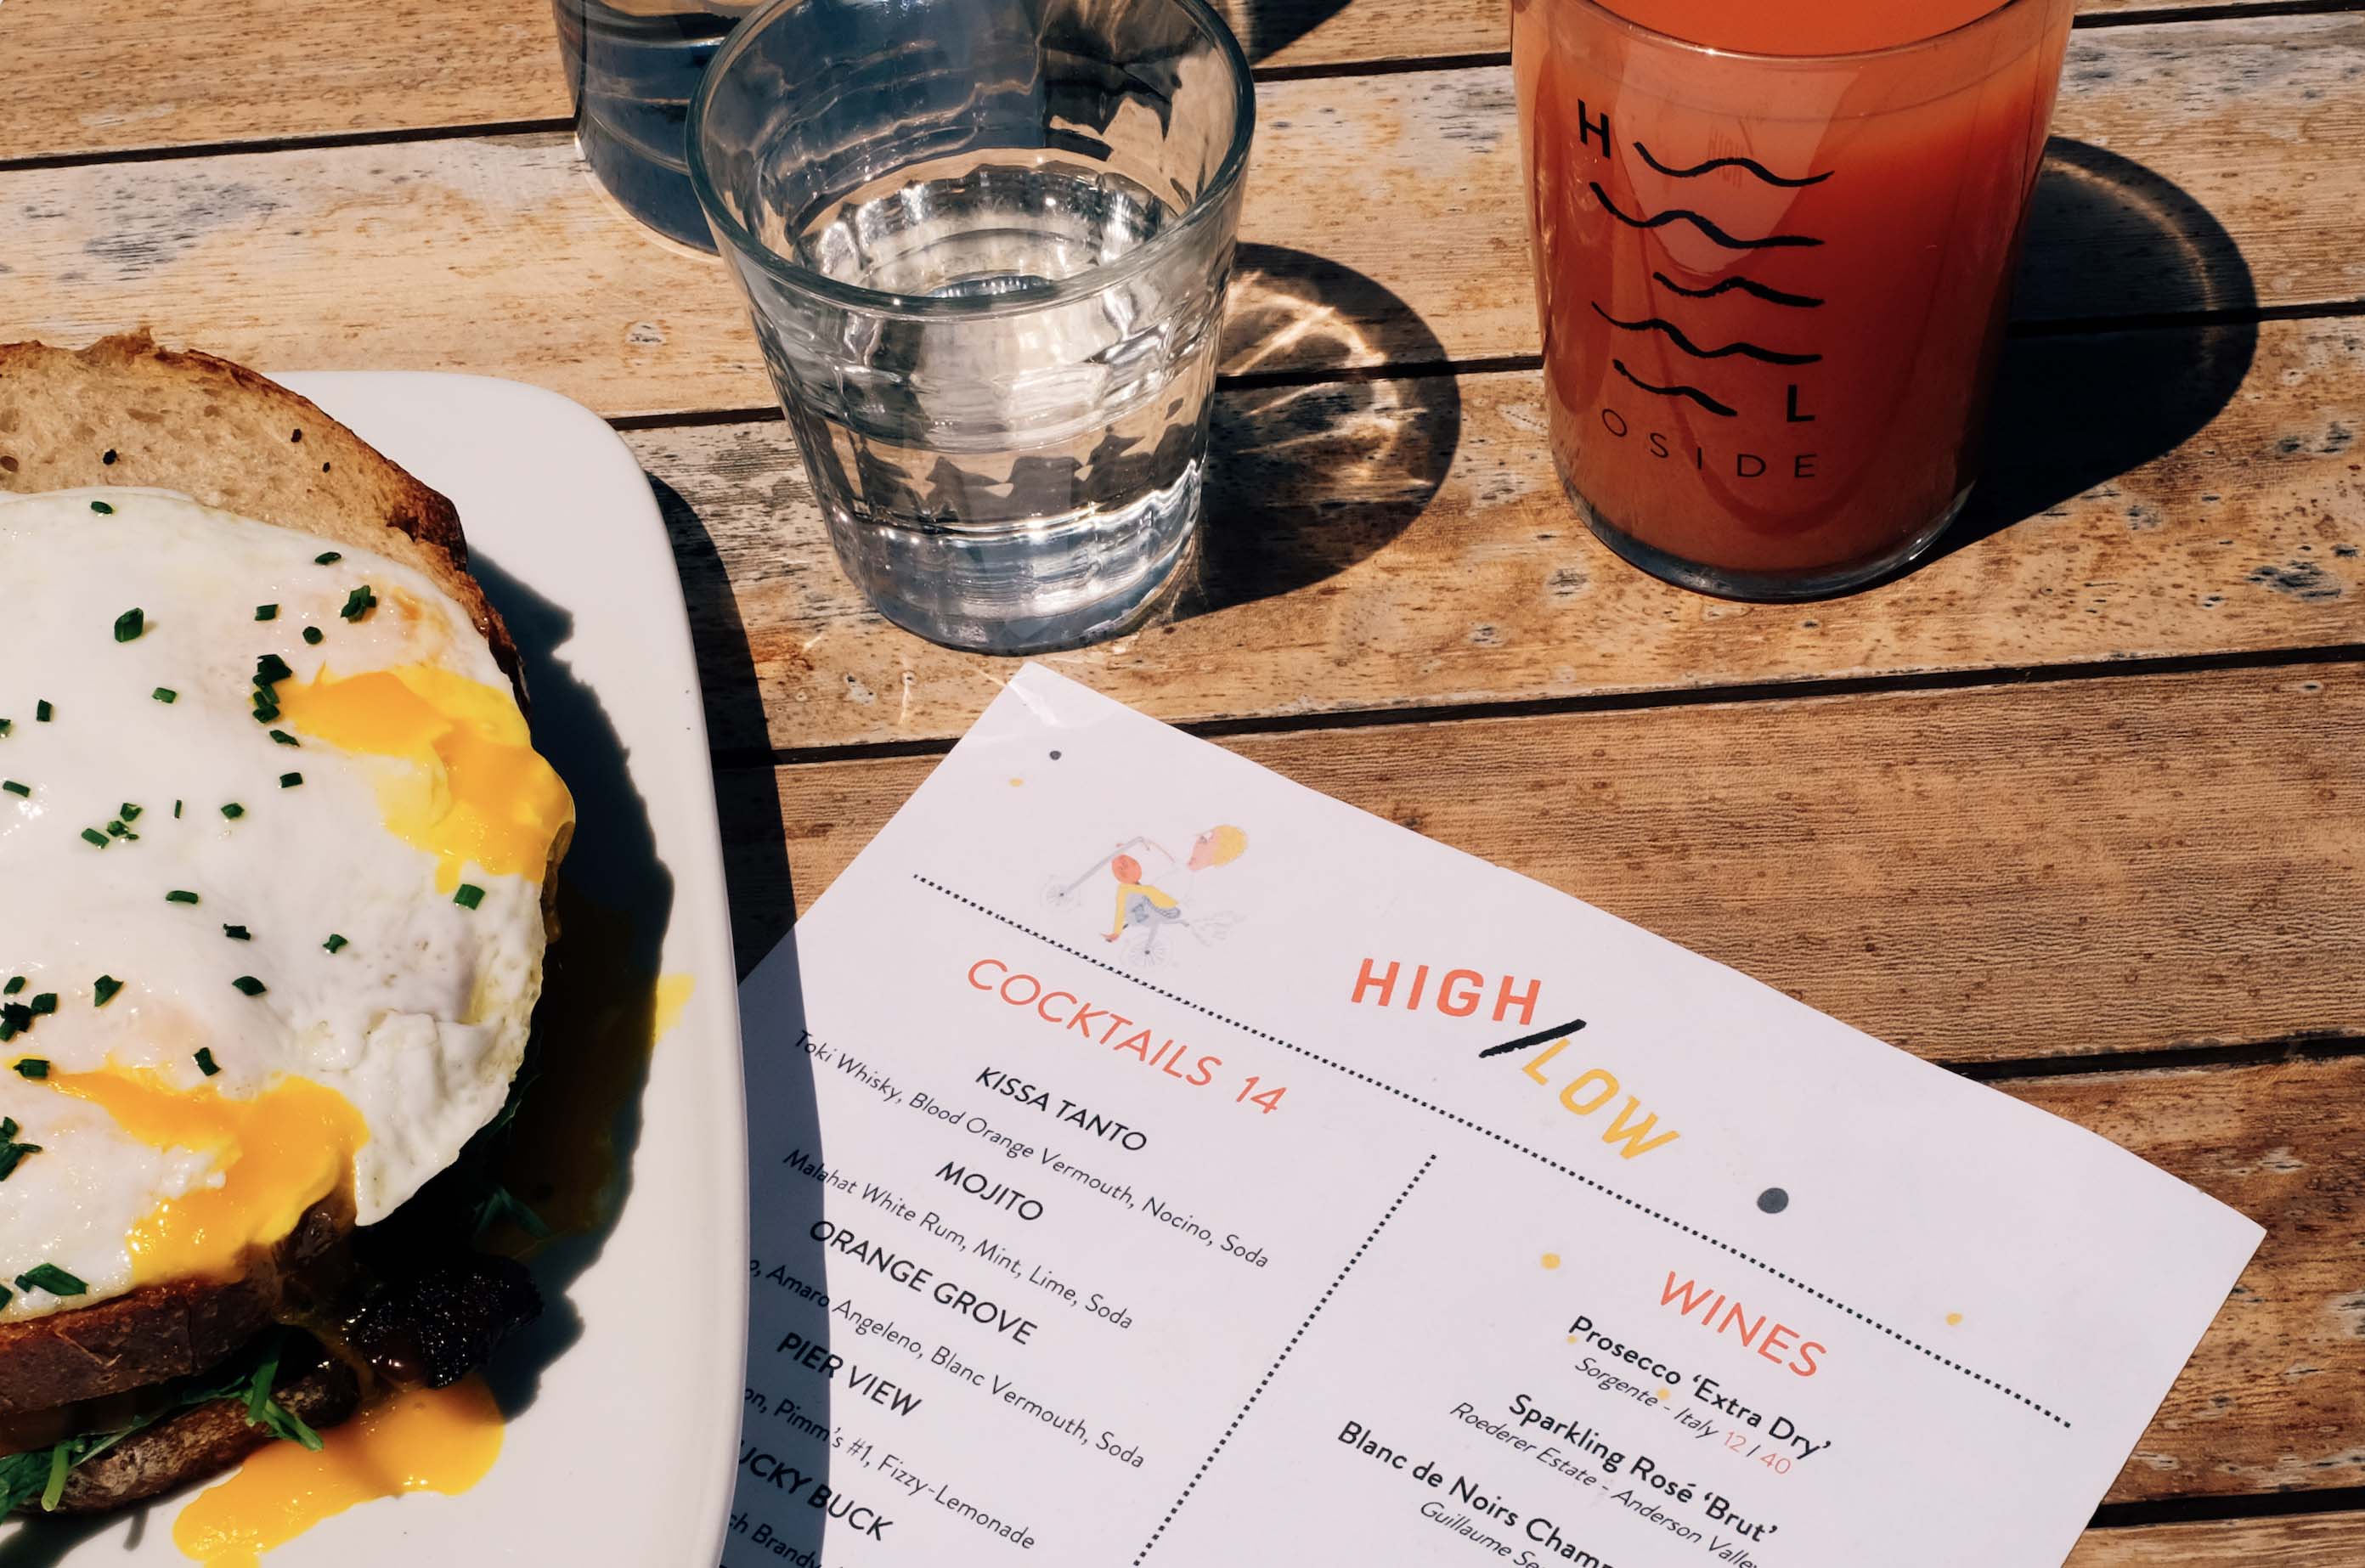 H
L
OSIDE
HIGH/LOW
COCKTAILS 14
KISSA TANTO
Toki Whisky, Blood Orange Vermouth, Nocino, Soda
MOJITO
Malahat White Rum, Mint, Lime, Soda
ORANGE GROVE
Amaro Angeleno, Blanc Vermouth, Soda
PIER VIEW
Pimm's #1, Fizzy-Lemonade
BUCK
Brandy,
WINES
Prosecco ‘Extra Dry’
Sorgente - Italy 12 / 40
Sparkling Rosé ‘Brut’
Roederer Estate - Anderson Valley
Blanc de Noirs
Guillaume